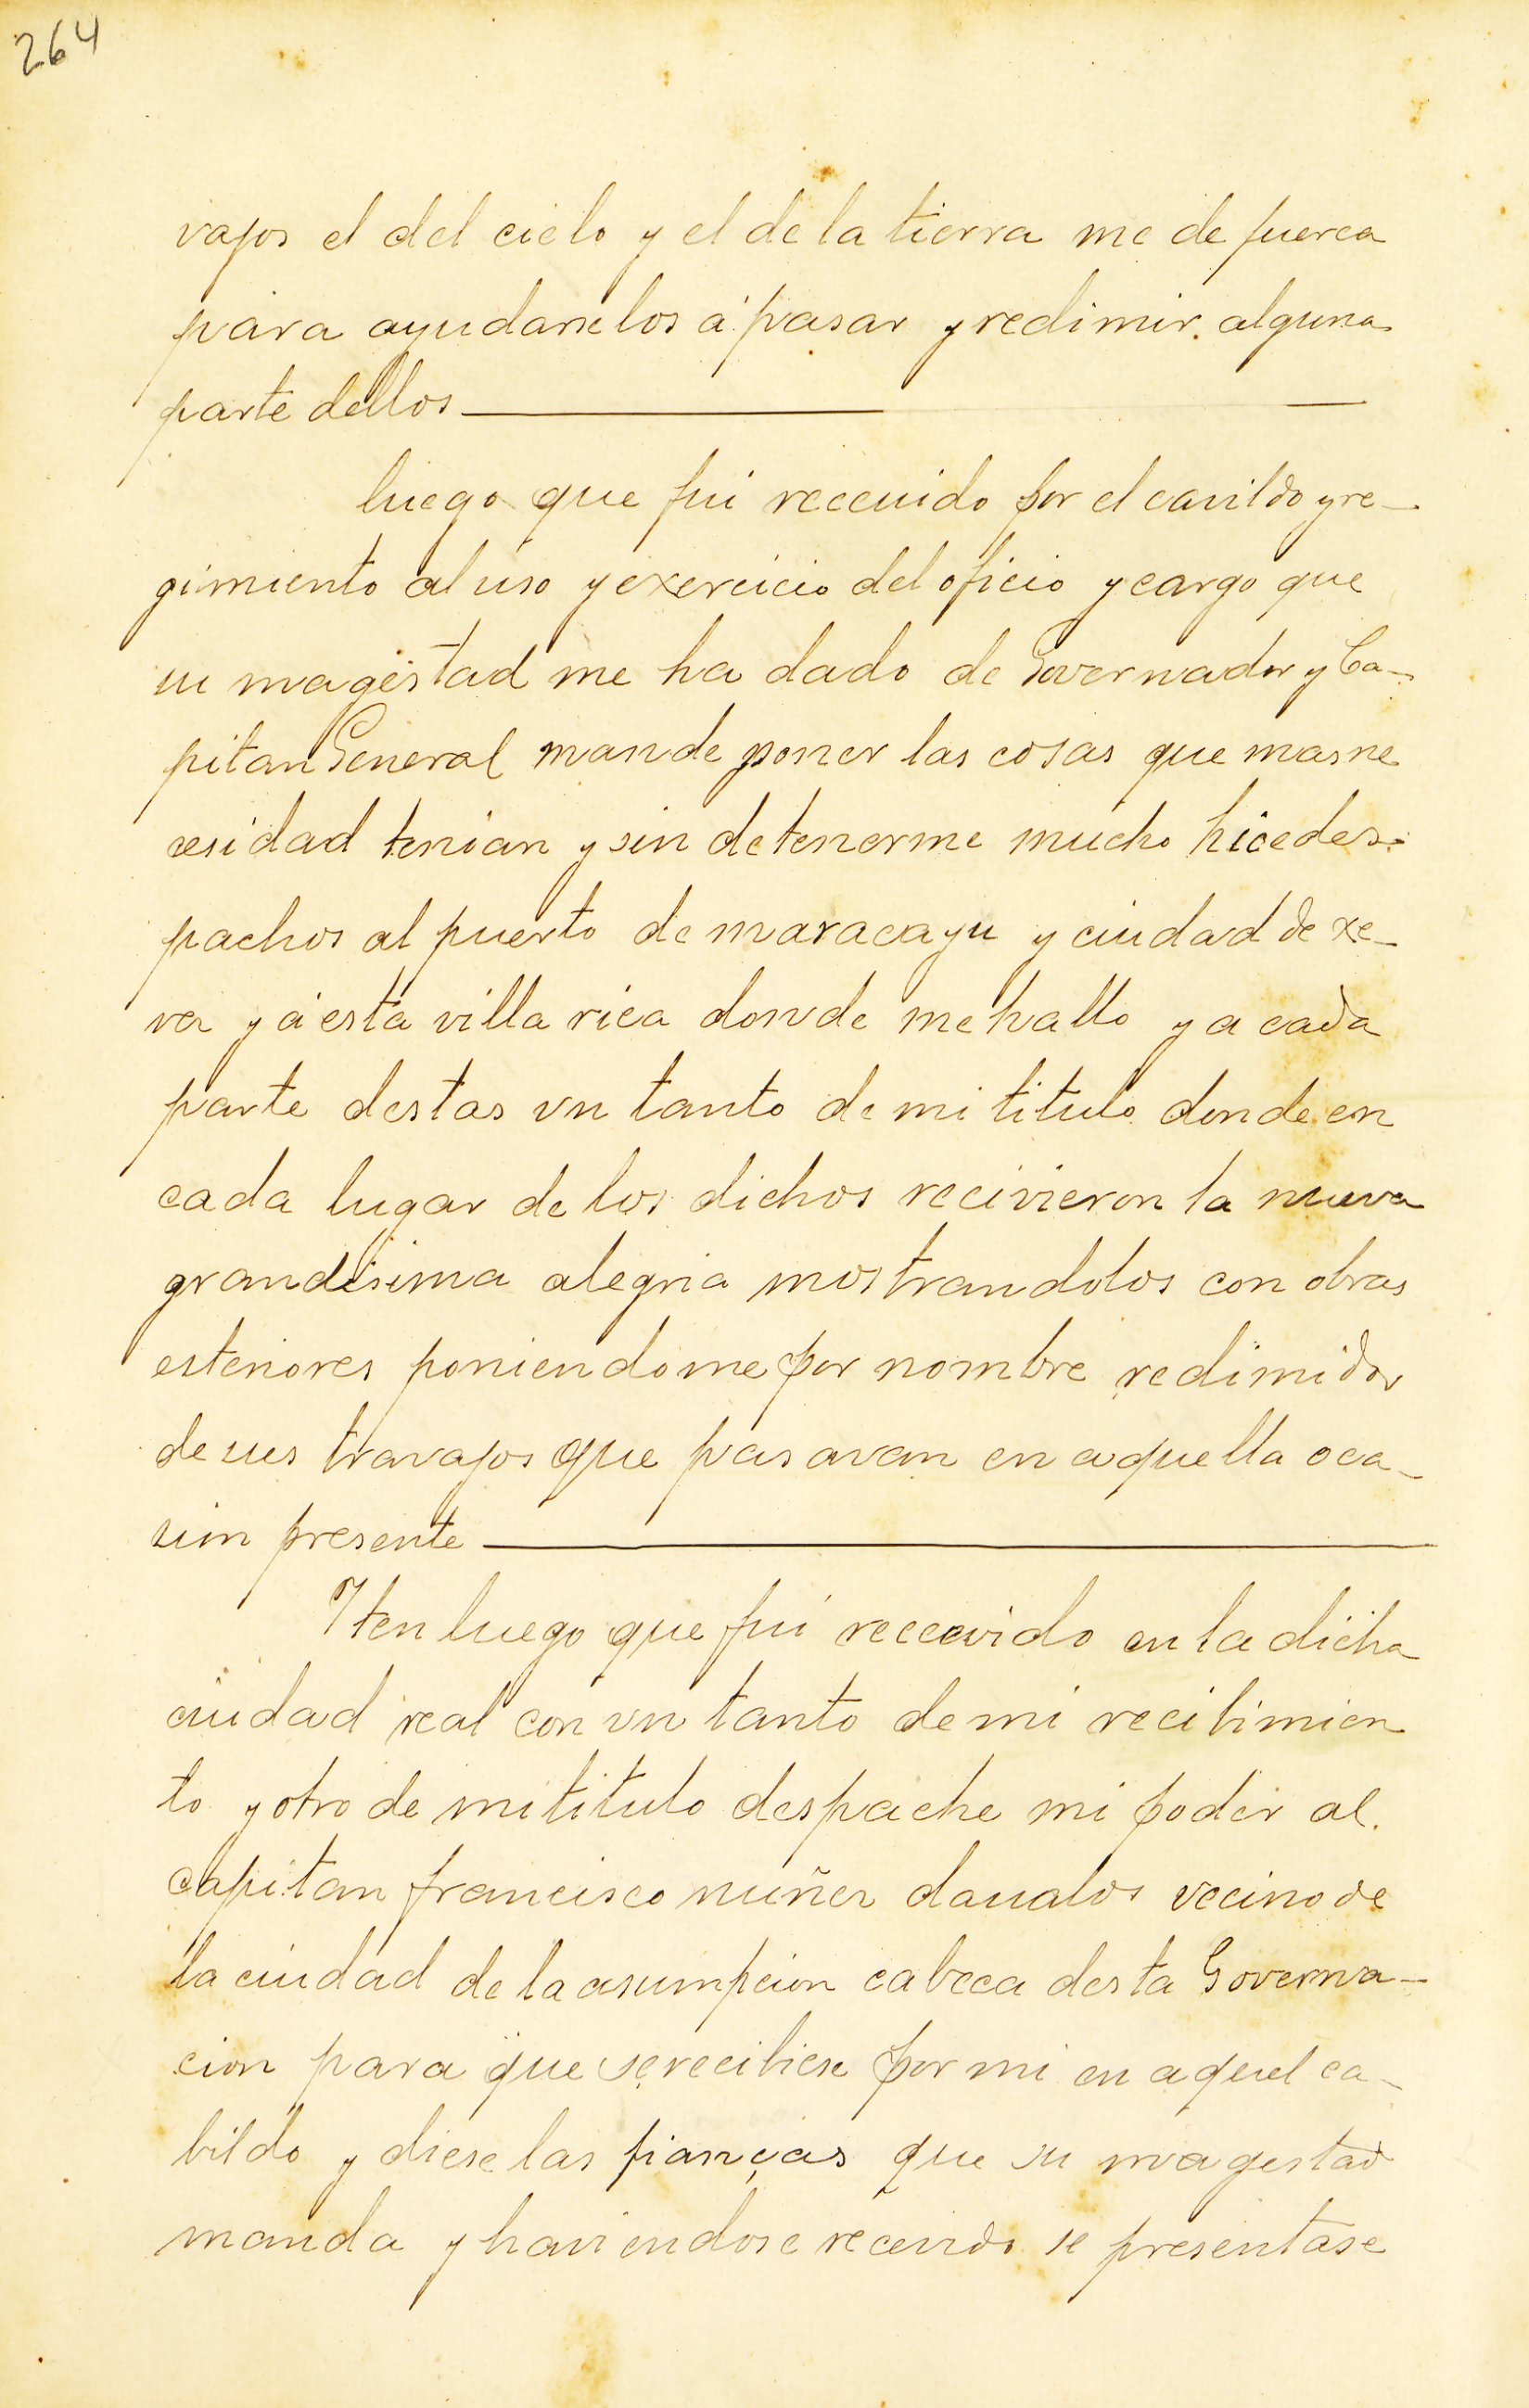 264
vajos el del cielo y el de la tierra me de fuerca
para ayudarselos á pasar y redimir alguna
parte dellos
luego que fui receuido por el cauildo y re-
gimiento al uso y exercicio del oficio y cargo que
su magestad me ha dado de Governador y Ca-
pitan General mande poner las cosas que mas ne
cesidad tenian y sin detenerme mucho hice des-
pachos al puerto de maracayu y ciudad de xe-
rez y á esta villa rica donde me hallo y a cada
parte destas vn tanto de mi titulo donde en
cada lugar de los dichos recivieron la nueva
grandisima alegria mostrandolos con obras
esteriores poniendome por nombre redimidor
de sus travajos que pasavan en aquella oca-
sion presente
Iten luego que fui recevido en la dicha
ciudad real con vn tanto de mi recibimien
to y otro de mi titulo despache mi poder al
capitan francisco nuñez daualos vecino de
la ciudad de la asumpcion cabeca desta Governa-
cion para que se recibiese por mi en aquel ca-
bildo y diese las fianças que su magestad
manda y haviendose recevido se presentase